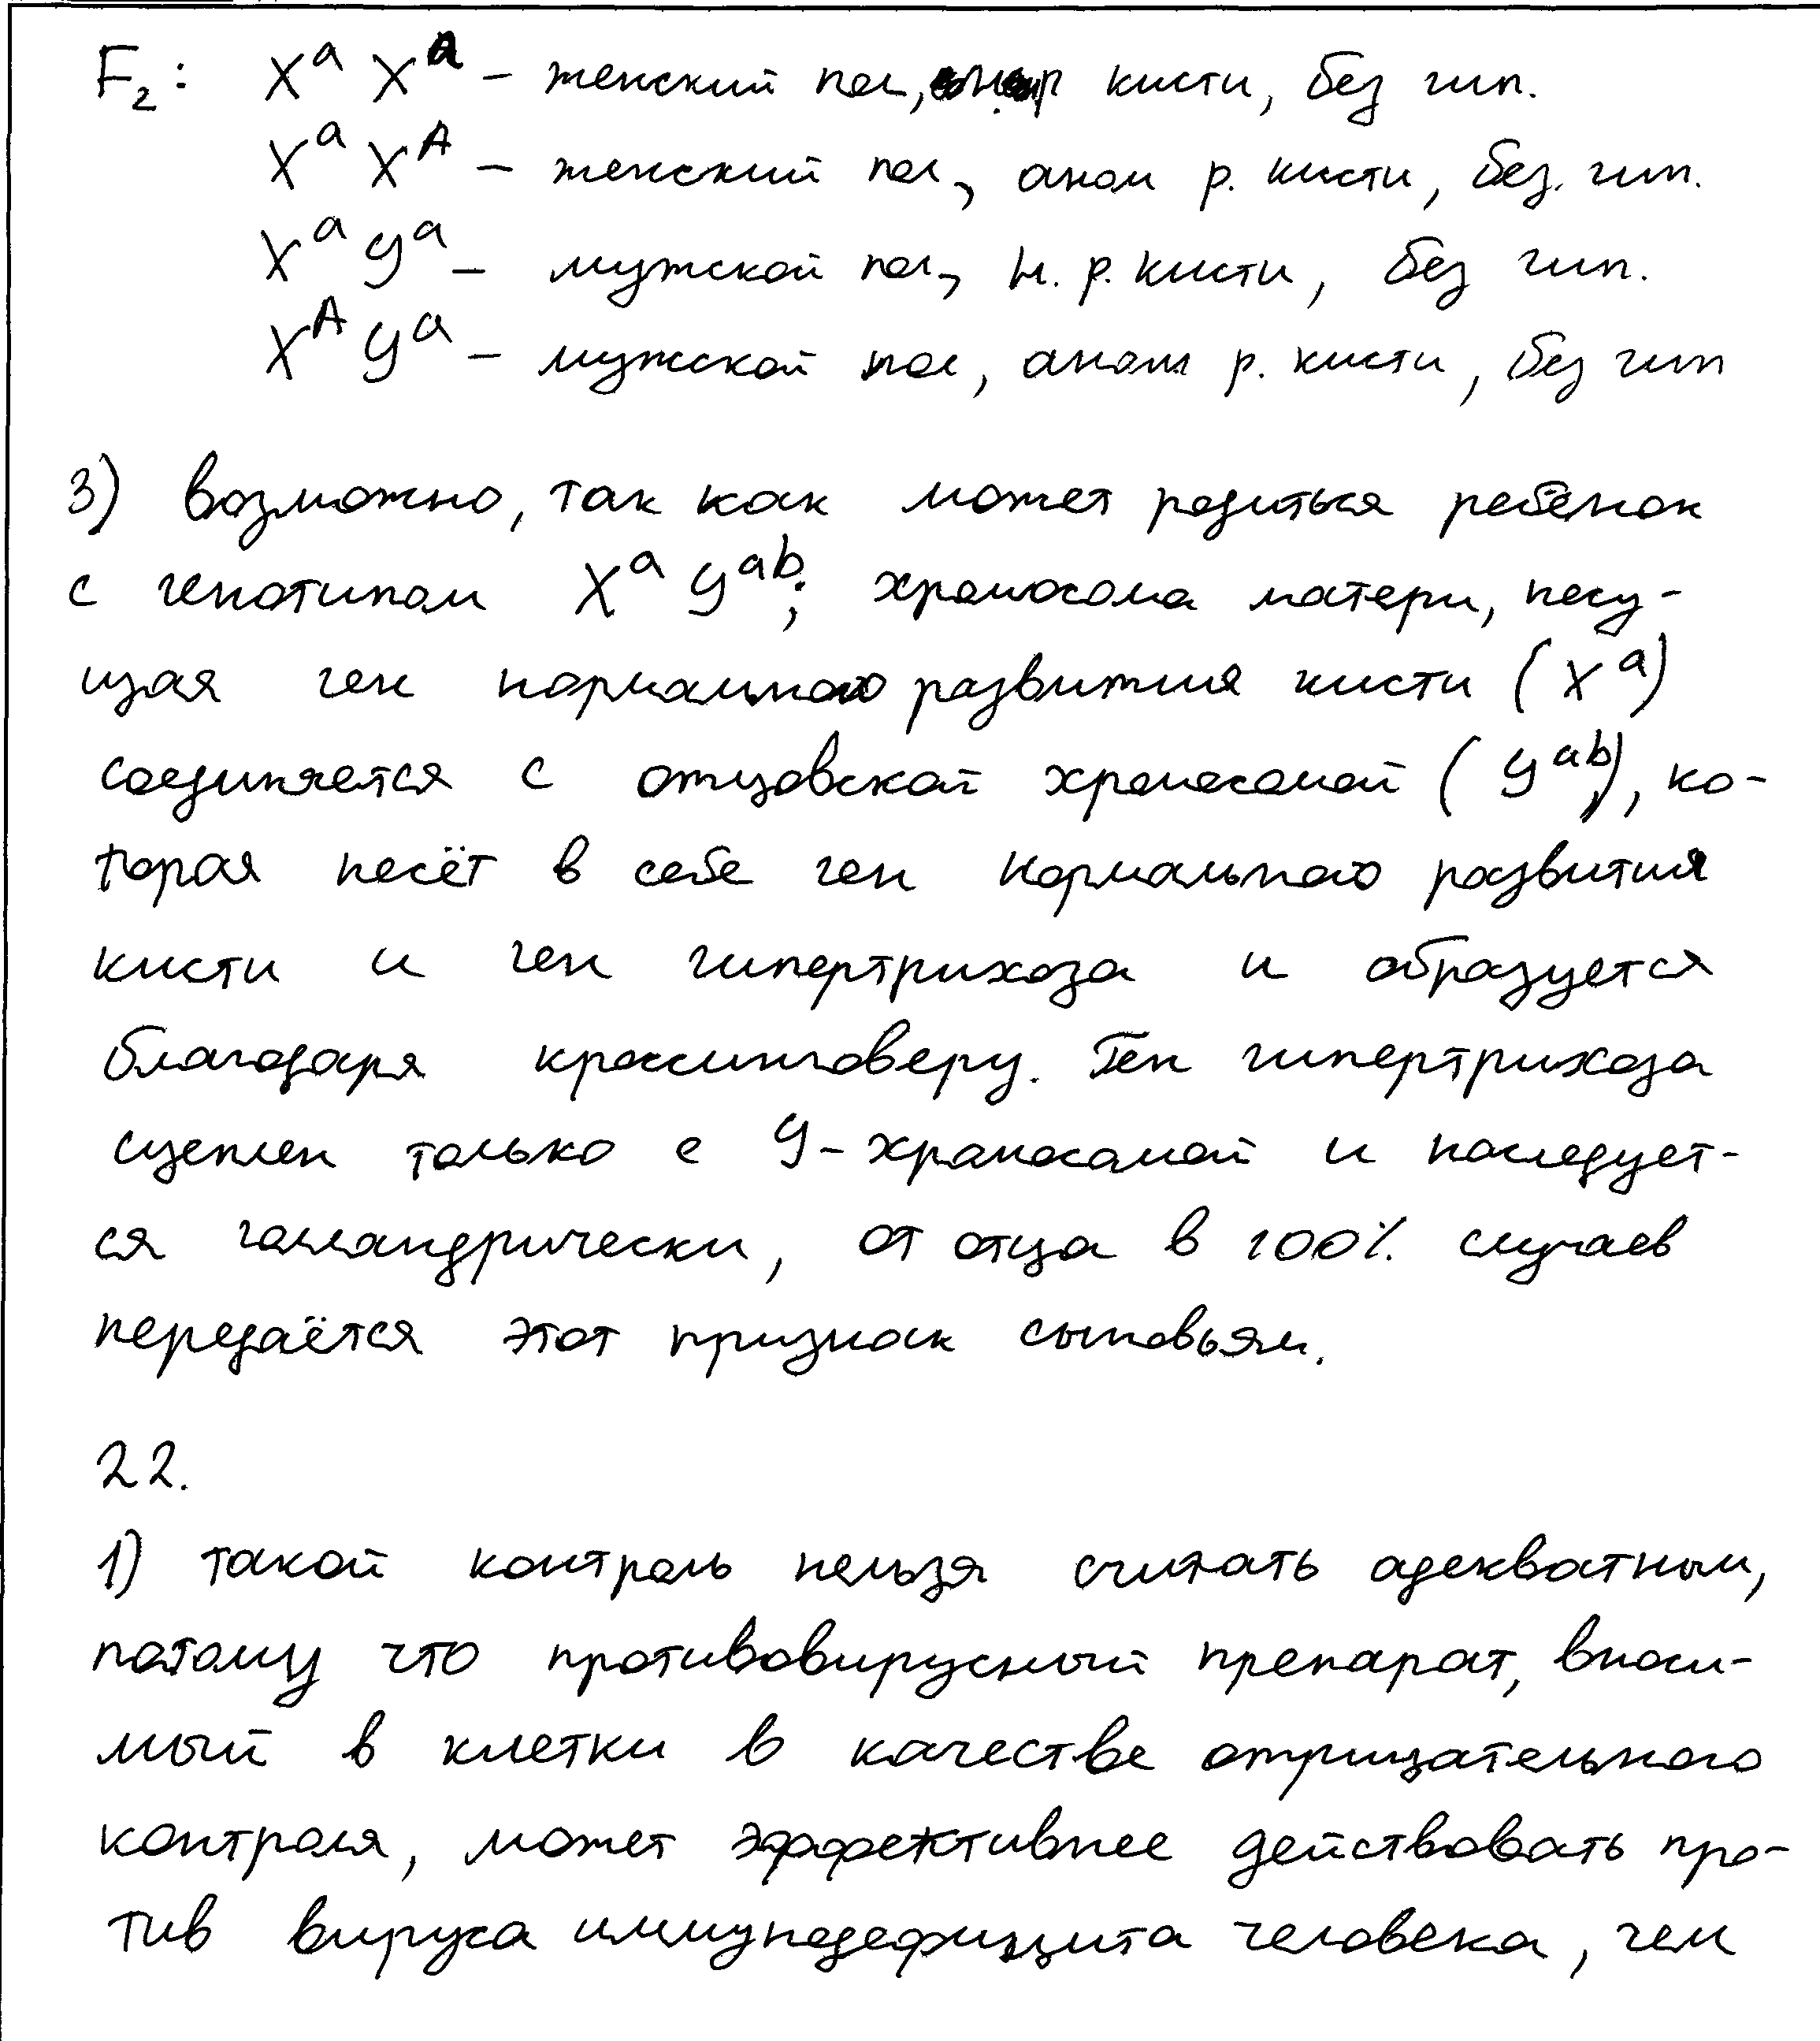 F₂: Xᵃ Xᵃ – женский пол, р кисти, без гип.
Xᵃ Xᴬ – женский пол, аном р. кисти, без. гип.
Xᵃ Yᵃ – мужской пол, н. р. кисти, без гип.
Xᴬ Yᵃ – мужской пол, аном р. кисти, без гип
3) возможно, так как может родиться ребёнок
с генотипом Xᵃ Yᵃᵇ; хромосома матери, несу-
щая ген нормального развития кисти (Xᵃ)
соединяется с отцовской хромосомой (Yᵃᵇ), ко-
торая несёт в себе ген нормального развития
кисти и ген гипертрихоза и образуется
благодаря кроссинговеру. Ген гипертрихоза
сцеплен только с Y-хромосомой и наследует-
ся голландрически, от отца в 100% случаев
передаётся этот признак сыновьям.
22.
1) такой контроль нельзя считать адекватным,
потому что противовирусный препарат, вноси-
мый в клетки в качестве отрицательного
контроля, может эффективнее действовать про-
тив вируса иммунодефицита человека, чем